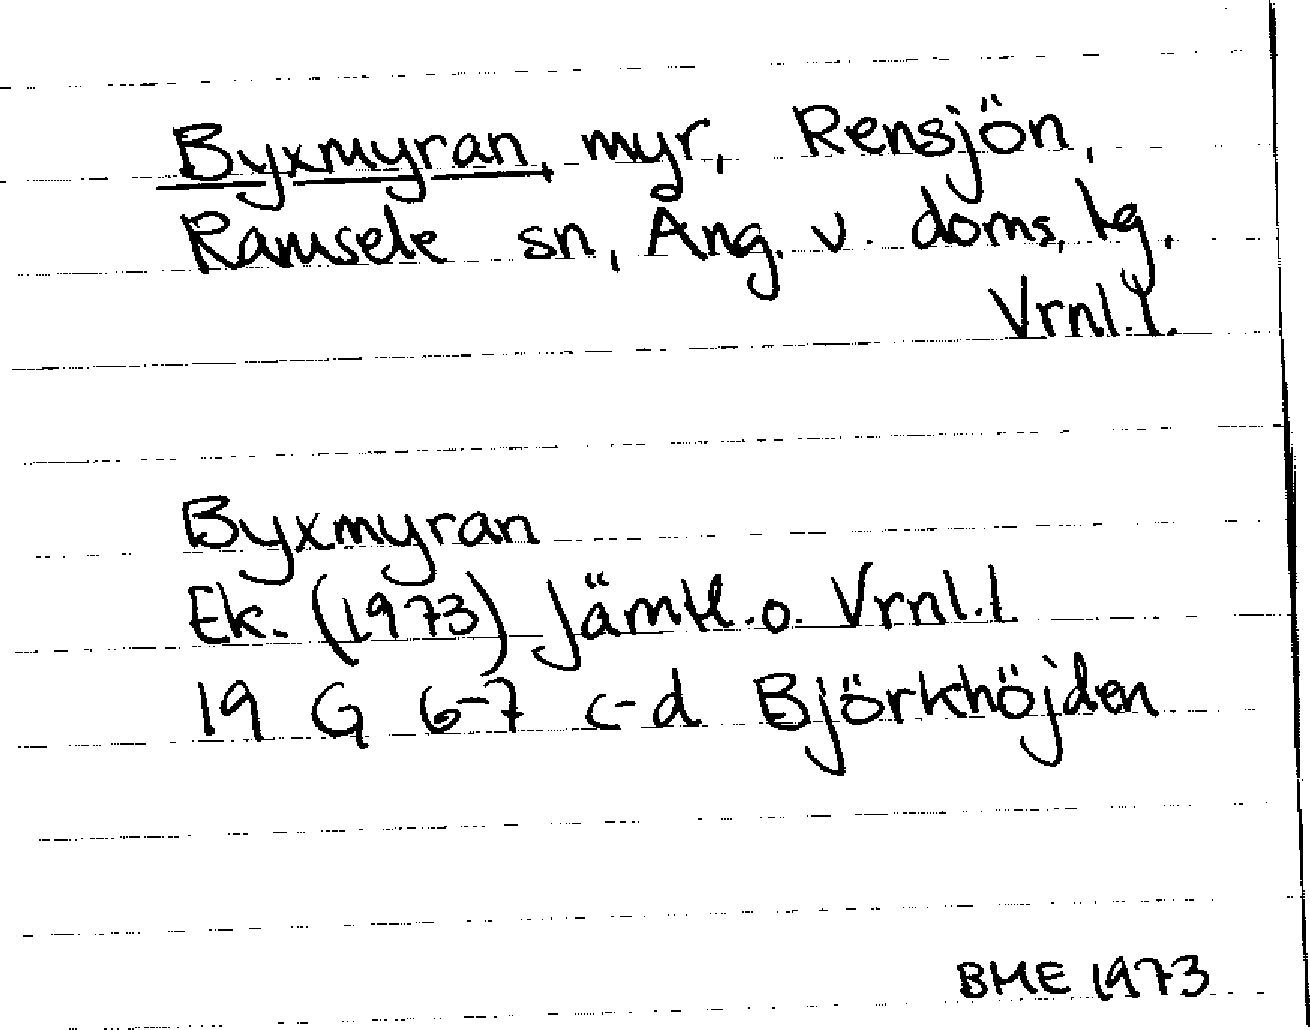 Byxmyran, myr, Rensjön,
Ramsele sn, Ång. v. doms. tg,
Vrnl. l.
Byxmyran
Ek. (1973) Jämtl. o. Vrnl. l.
19 G 6-7 c-d Björkhöjden
BME 1973